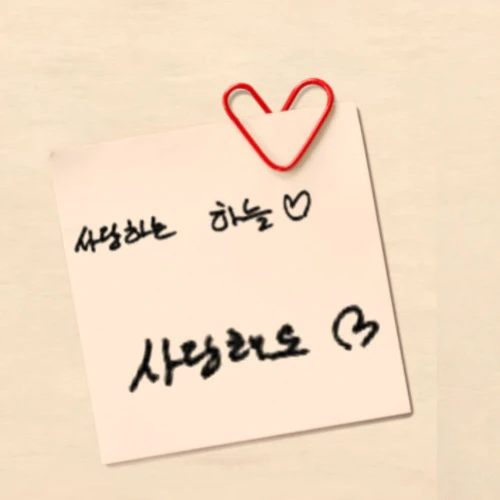 사랑하는 하늘♡
사랑해요 ♡